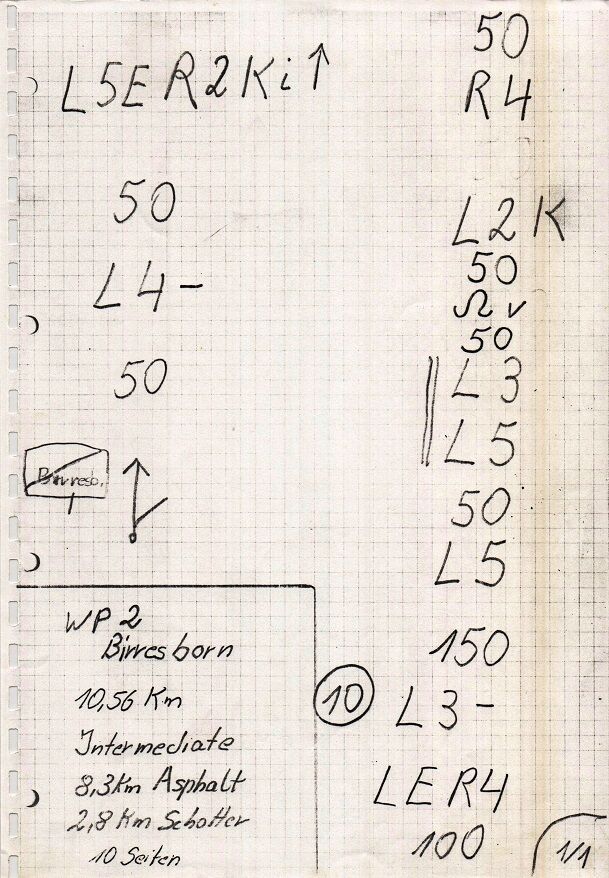 L5ER2Ki↑
50
L4-
50
Birresb.
WP 2
Birresborn
10,56 Km
Intermediate
8,3Km Asphalt
2,8 Km Schotter
10 Seiten
50
R4
L2K
50
Ω v
50
L3
L5
50
L5
150
10 L3-
LER4
100
1/1